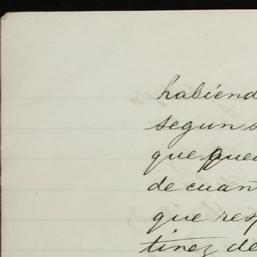 habiend
segun s
que pued
de cuan
que res
tinez de